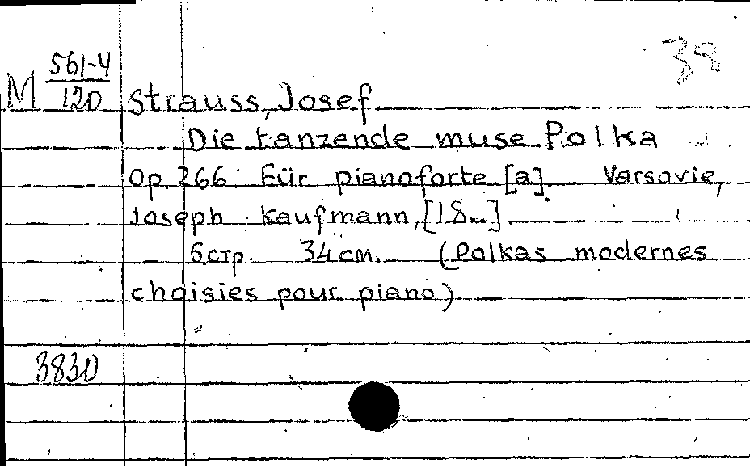 39
M 561-4
120
Strauss, Josef
Die tanzende muse Polka
op 266 für pianoforte [a] Varsovie,
Joseph Kaufmann, [18...]
6 стр 34 см. (Polkas modernes
choisies pour piano)
3830